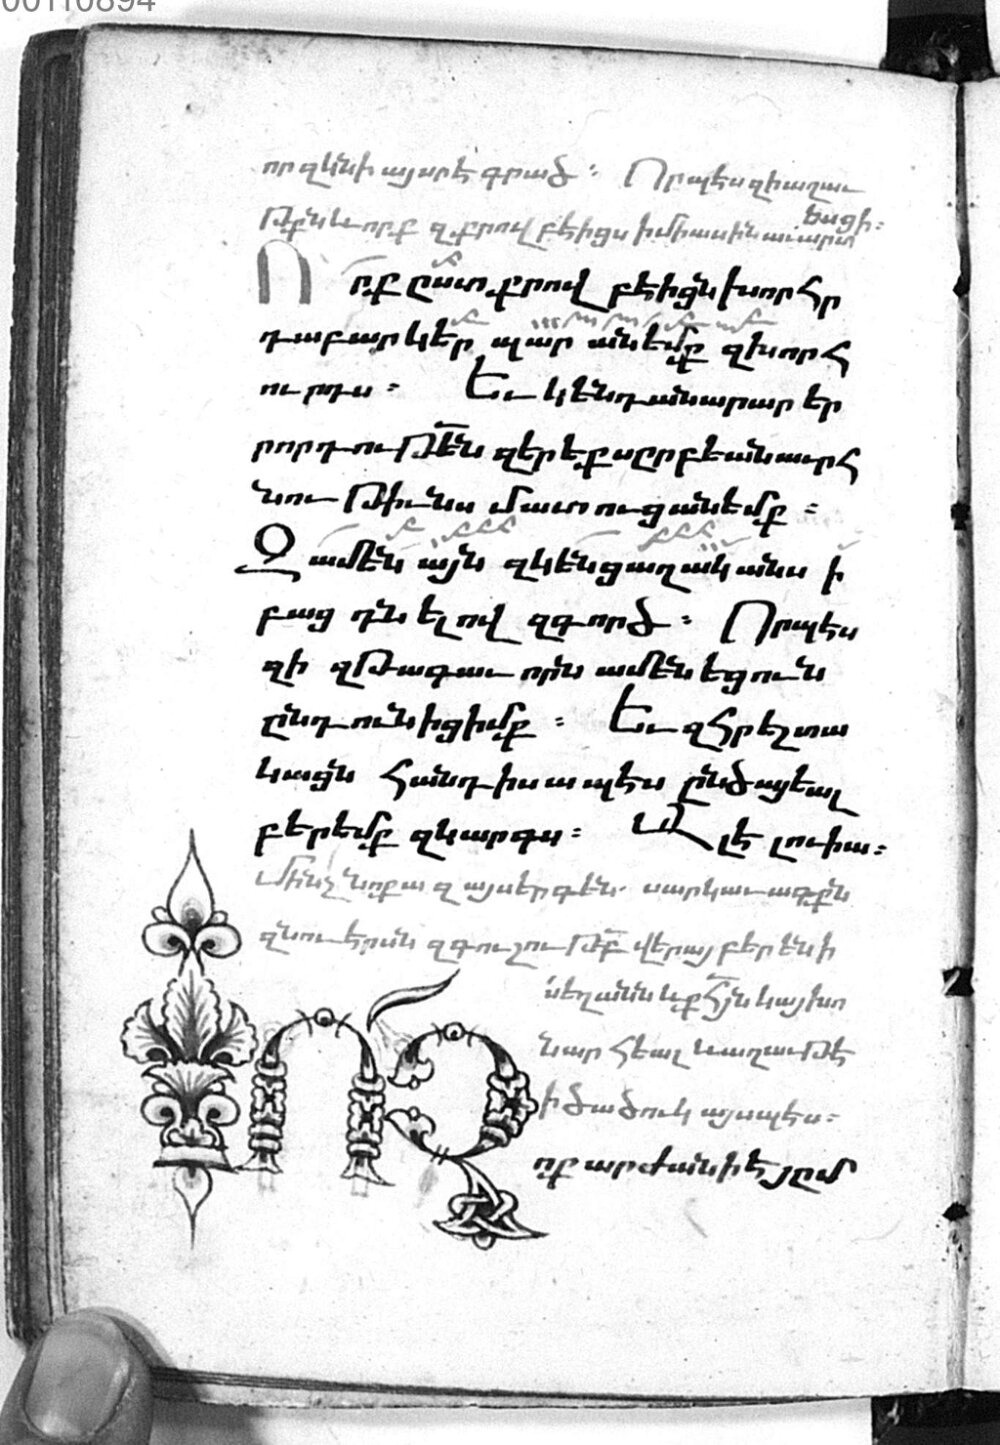 00110894
որ զկնի այսրէ գրած։ Որպէս զի աղաւ
թքն և որք զքրովբէիցս իմիասին աւարտ
եսցի։
Որք ըստ քրովբէիցն խորհր
դաբար կեր պար անեմք զխորհ
ուրդս։ Եւ կենդանարար եր
րորդութեն զերեքսըրբեանաւրհ
նութիւնս մատուցանեմք։
Զամեն այն զկենցաղականս ի
բաց դնելով զգործ։ Որպէս
զի զԹագաւորն ամենեցուն
ընդունիցիմք։ Եւ զհրեշտա
կացն հանդիսապէս ընծայեալ
բերեմք զկարգս։ Ալէլուիա։
Մինչ նոքա զայս երգեն. սարկաւագքն
զնուերսն զգուշութեբ վերայ բերեն ի
սեղանն և քհյն կայ խո
նարհեալ և աղաւթէ
ի ծածուկ այսպէս։
Ոչ ոք արժանի է յըմ